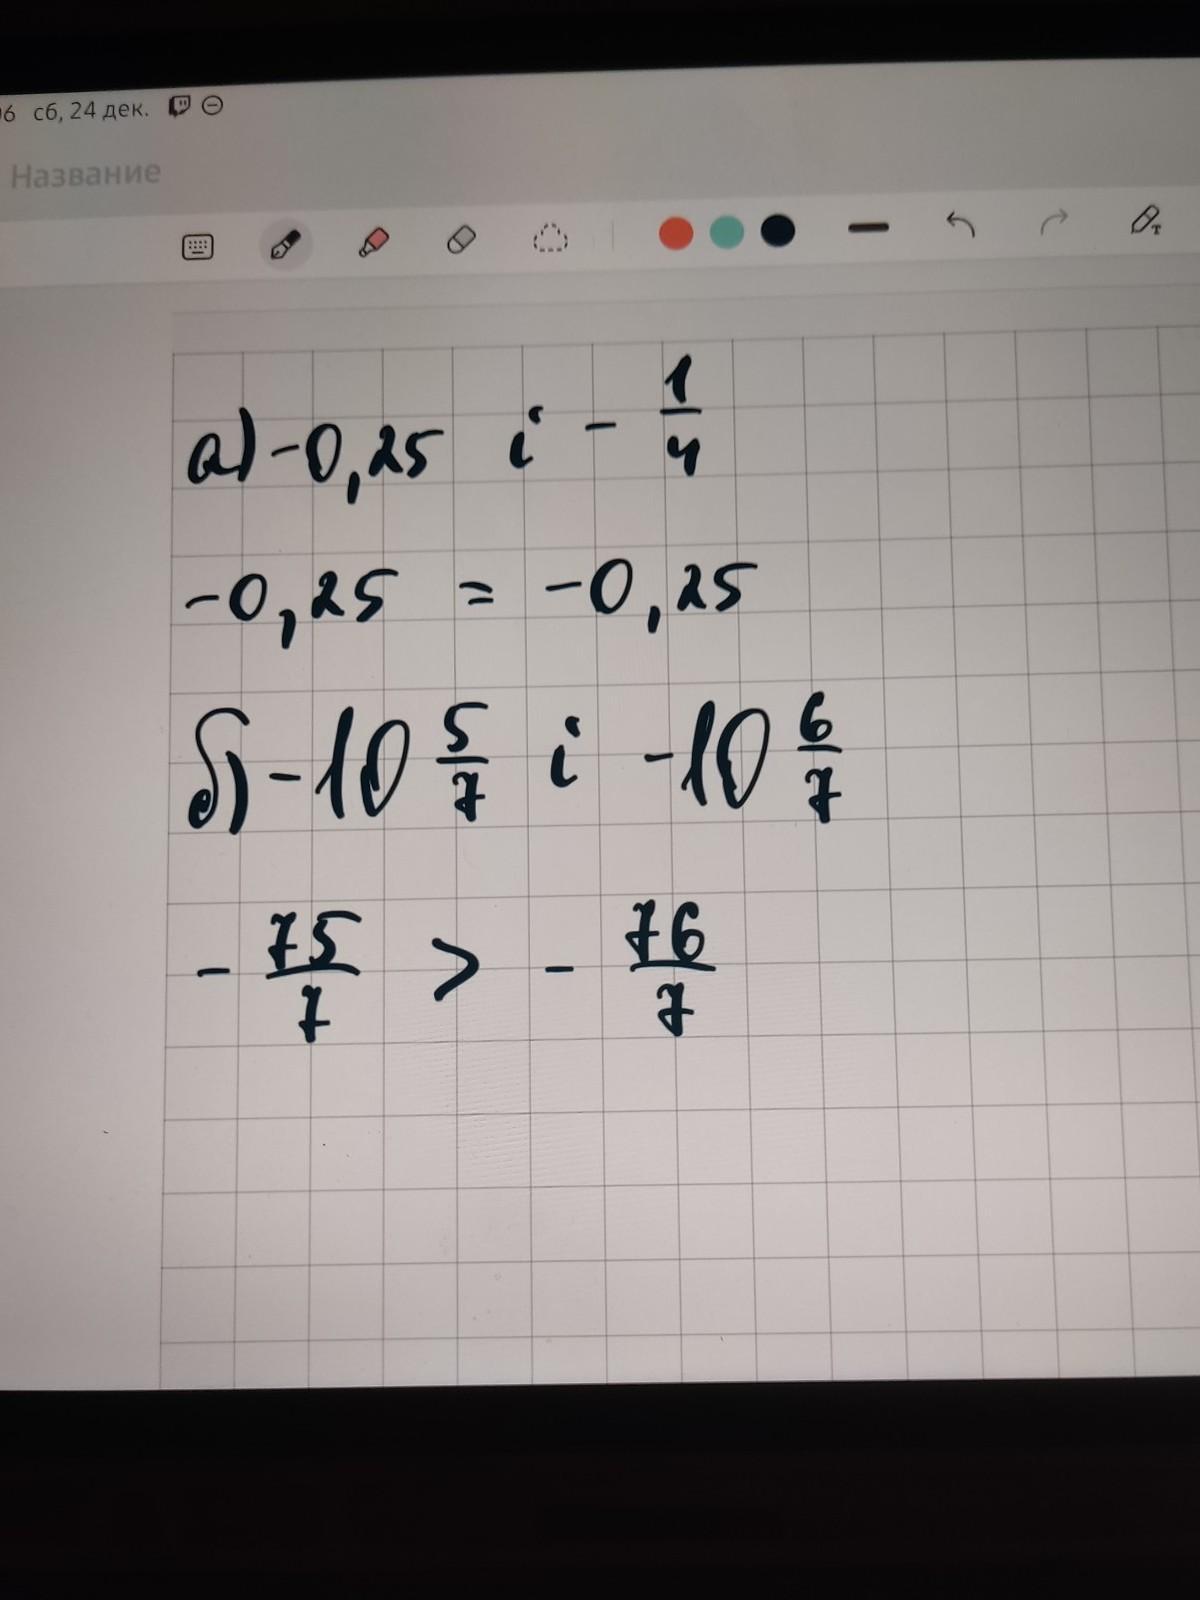 06 сб, 24 дек.
Название
а) -0,25 і - 1/4
-0,25 = -0,25
б) -10 5/7 і -10 6/7
- 75/7 > - 76/7